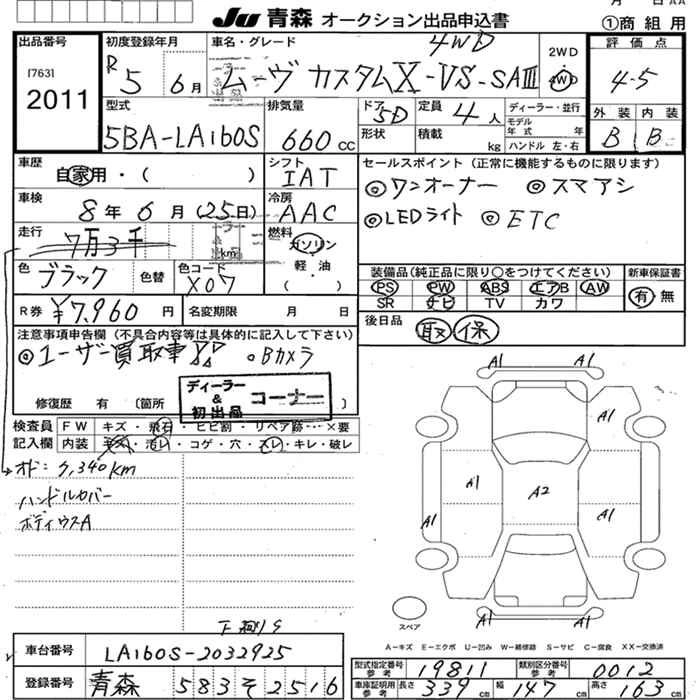 月 日 AA
Ju 青森 オークション出品申込書 ①商組用
出品番号
17631
2011
初度登録年月
R 5 年 6月
車名・グレード
4WD
ムーヴ カスタムX-VS-SAⅢ
2WD
4WD
評価点
4-5
外装 内装
B B
型式
5BA-LA160S
排気量
660cc
ドア 5D
形状
定員 4人
積載 kg
ディーラー・並行
モデル
年式 年
ハンドル 左・右
車歴
自家用・( )
シフト
IAT
車検
8年6月(25日)
冷房
AAC
走行
7万3千
km
燃料
ガソリン
軽・油
( )
色
ブラック
色替
色コード
X07
R券 ¥7,960円
名変期限 月 日
セールスポイント(正常に機能するものに限ります)
◎ワンオーナー ◎スマアシ
◎LEDライト ◎ETC
装備品(純正品に限り○をつけてください)
PS PW ABS エアB AW
SR ナビ TV カワ
新車保証書
有 無
後日品
取 保
注意事項申告欄(不具合内容等は具体的に記入して下さい)
◎ユーザー買取車 。Bカメラ
ディーラー
&
初出品
コーナー
修復歴 有 (箇所 )
検査員
記入欄
FW キズ・飛石・ヒビ割・リペア跡・・・×要
内装 ・汚レ・コゲ・穴・スレ・キレ・破レ
オド: 340km
ハンドルカバー
ボディウスA
A1 A1
A1
A1
A1
A2
A1
A1
A1 A1
スペア
A-キズ E-エクボ U-凹み W-補修跡 S-サビ C-腐食 XX-交換済
車台番号
LA160S-2032925
登録番号
青森 583 そ 2516
型式指定番号
参考
19811
類別区分番号
参考
0012
車庫証明用
参考
長さ 339cm 幅 147cm 高さ 163cm